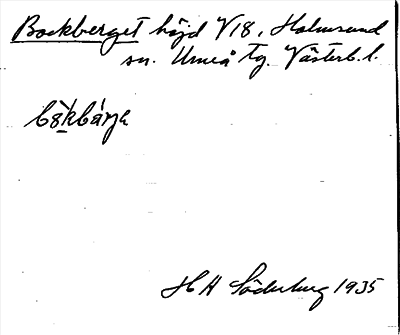 Bockberget höjd V18, Holmsund
sn. Umeå tg. Västerb. l.
bòkbárja
H H Söderberg 1935